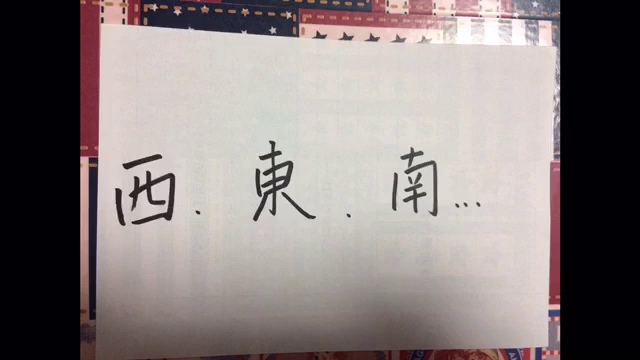 西.東.南...